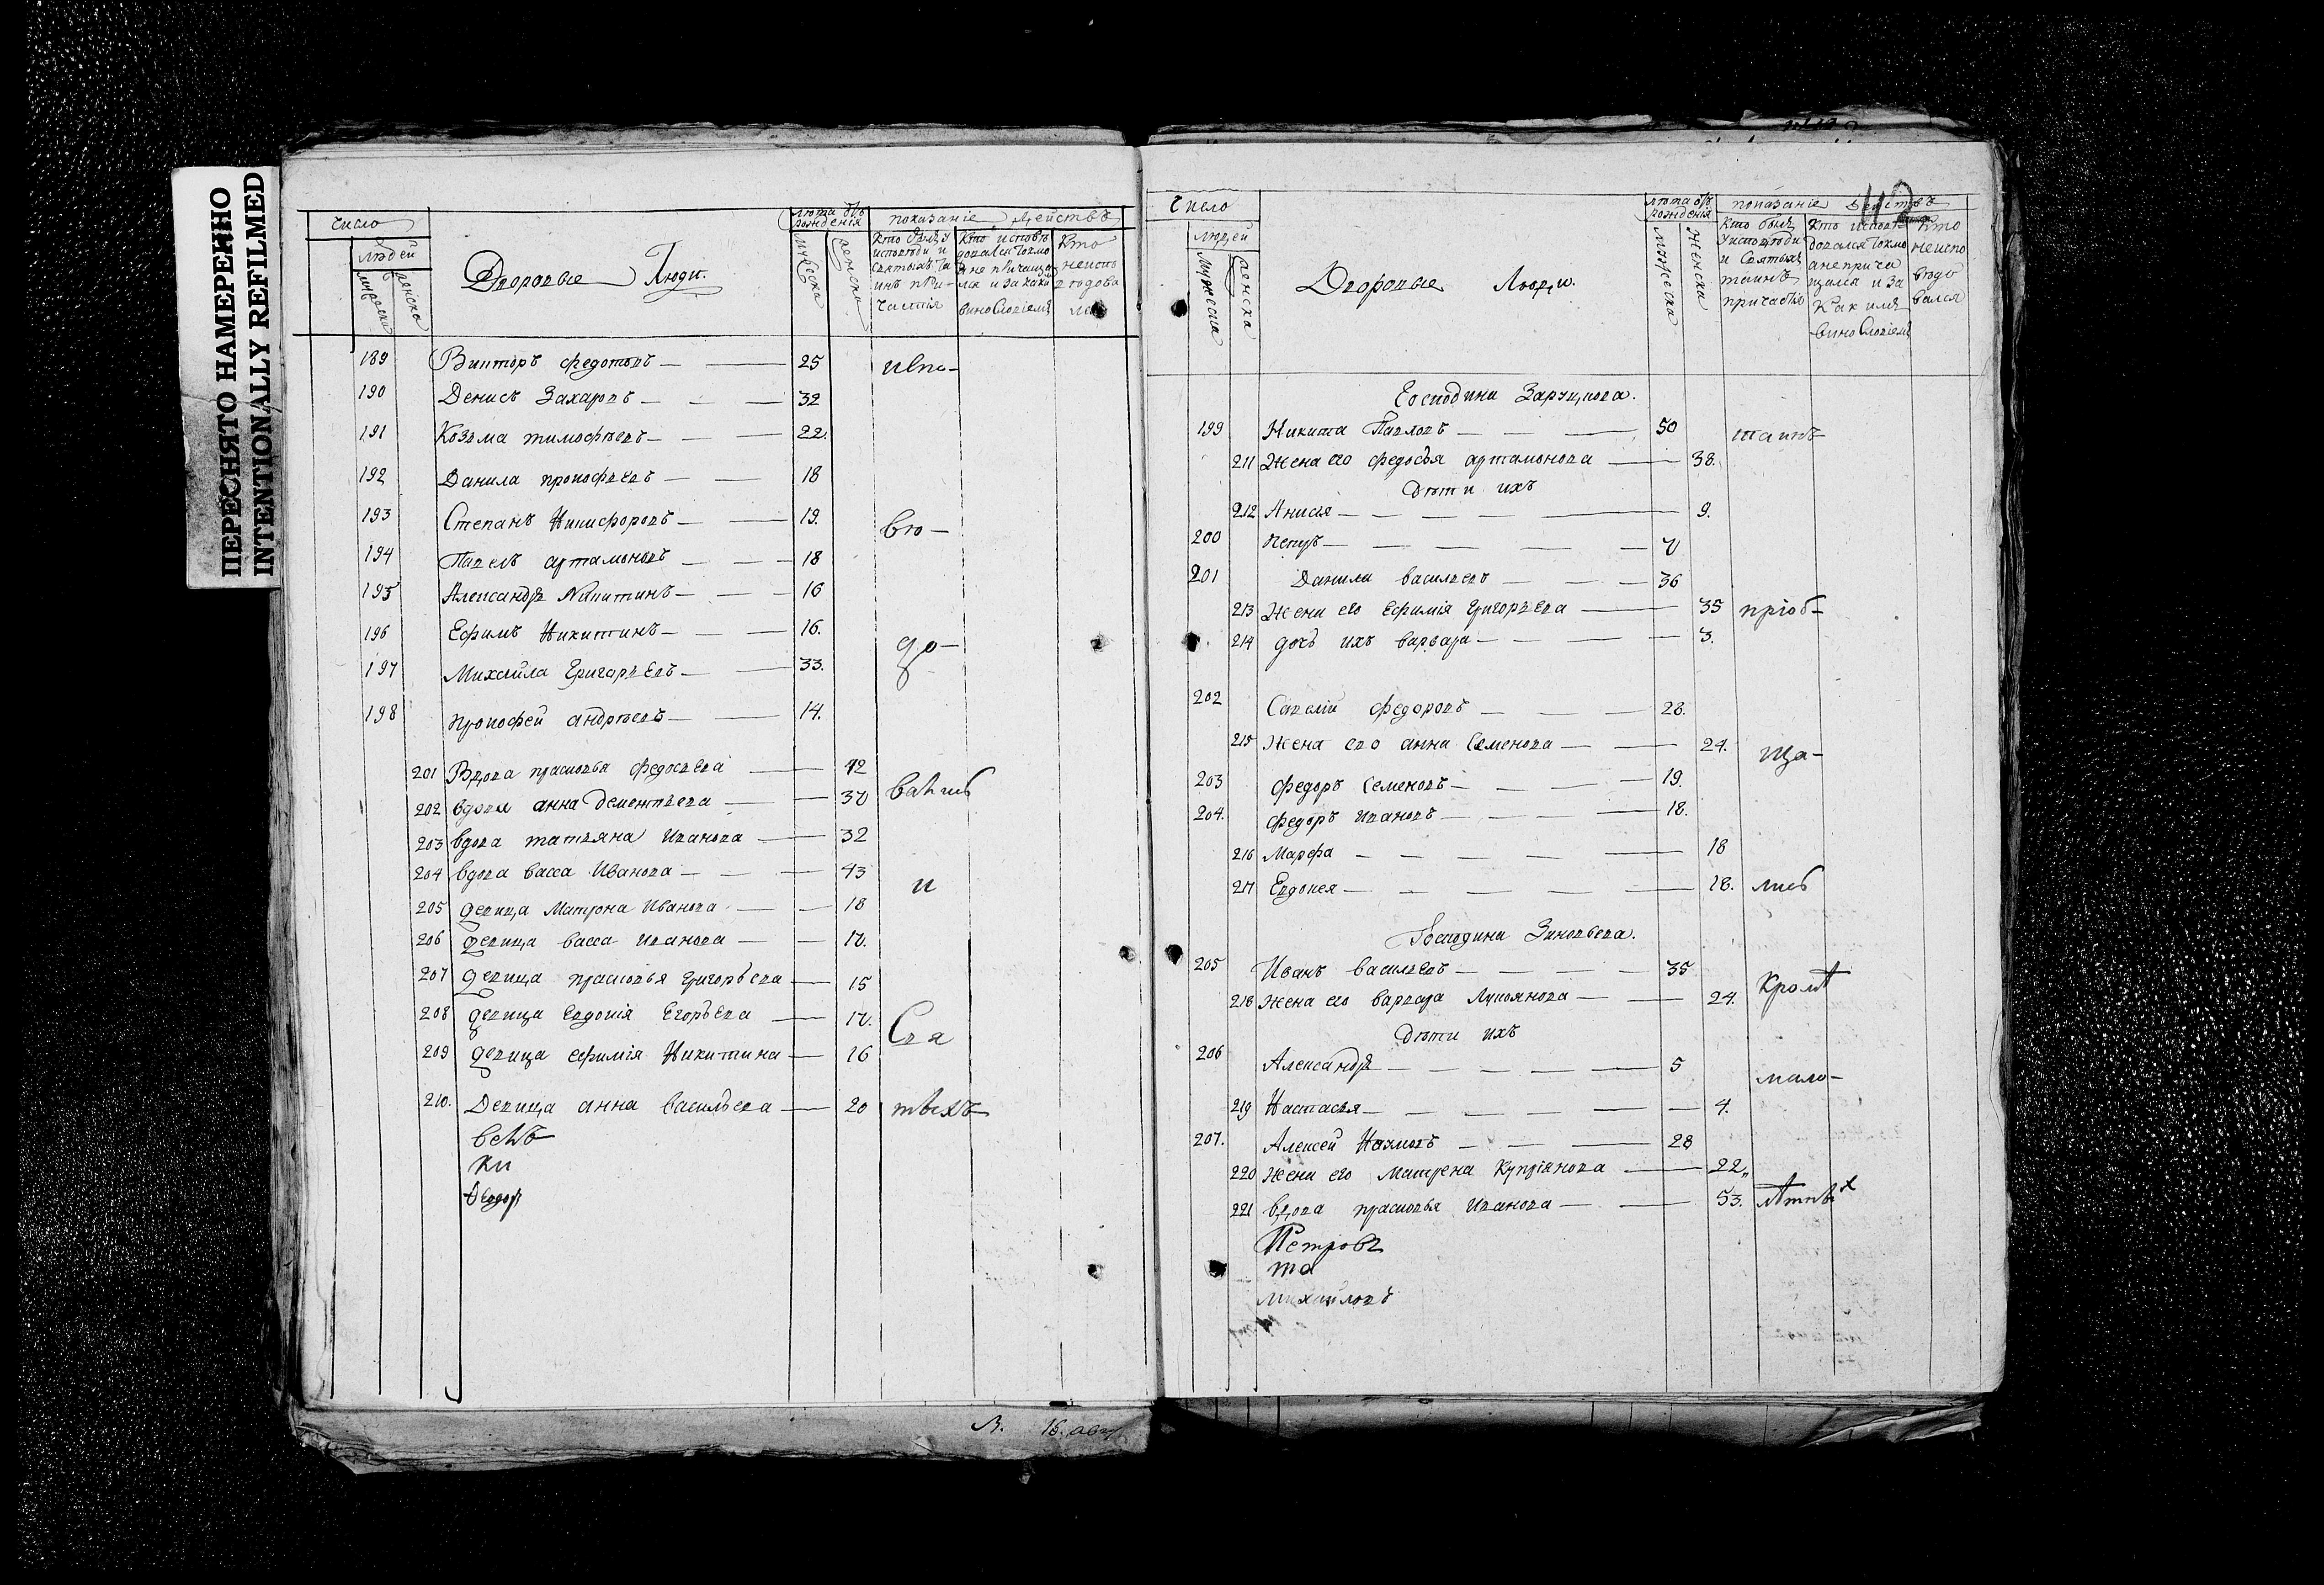 ПЕРЕСНЯТО НАМЕРЕННО
INTENTIONALLY REFILMED
число
людей
мужеска
женска
Дворовые Люди.
люта отъ рожденія
мужеска
женска
показаніе действъ
кто былъ у
исповѣди и
святыхъ та
инъ при-
частія
кто исповѣ
довался токмо
а не причаща
лся и за каки
виносло­віемъ
кто
неиспо
ведова
лся
189 Викторъ федотовъ — — 25 испо-
190 Денисъ Захаровъ — — — 32
191 Козма тимофѣевъ — — — 22.
192 Данила прокофьевъ — — 18
193 Степанъ Никифоровъ — — 19. вѣ-
194 Павелъ артамоновъ — — — 18
195 Александръ Никитинъ — — — 16
196 Ефимъ Никитинъ — — — 16. до-
197 Михайла Григорьевъ — — 33.
198 прокофей андрѣевъ — — 14.
201 Вдова прасковья федосѣева — 42 вались
202 вдова анна Дементьева — — 37
203 вдова татьяна Иванова — 32
204 вдова васса Иванова — — — 43 и
205 девица Матрона Иванова — — 18
206 девица васса Иванова — — 17.
207 девица прасковья григорьева — 15
208 девица евдокія Егорьева — 17. Свя
209 девица ефимія Никитина — 16
210. Девица анна васильева — 20 тыхъ
Ѳедор
16. авг
число
людей
мужеска
женска
Дворовые Люди.
люта отъ рожденія
мужеска
женска
показаніе действъ
кто былъ
у исповѣди
и святыхъ
таинъ
причастія
кто исповѣ
довался токмо
а не прича
щался и за
какимъ
виносло­віемъ
кто
неиспо
ведо
вался
Господина Заруцкова.
199 Никита Павловъ — — — 50 таинъ
211 Жена его федосья артамонова — 38.
Дѣти ихъ
212 Анисія — — — — — 9.
200 Петръ — — — — — 7
201 Данила васильевъ — — — 36
213 Жена его ефимія григорьева — 35 пріоб-
214 дочь ихъ варвара — — — — 3.
202 Савелій федоровъ — — — 28.
215 Жена его анна Семенова — — 24. ща-
203 федоръ Семеновъ — — — 19.
204. федоръ ивановъ — — — 18.
216 Марфа — — — — — 18
217 Евдокея — — — — — 18. лись
Господина Зиновьева.
205 Иванъ васильевъ — — — — 35 кромѣ
218 Жена его варвара Лукоянова — — 24.
Дѣти ихъ
206 Александръ — — — — — 5 мало-
219 Настасья — — — — — — 4.
207. Алексей Наумовъ — — — 28
220 Жена его Матрена Купріянова — 22,,
221 вдова прасковья Иванова — — 53. лѣтныхъ
Петровъ
та
михайловъ